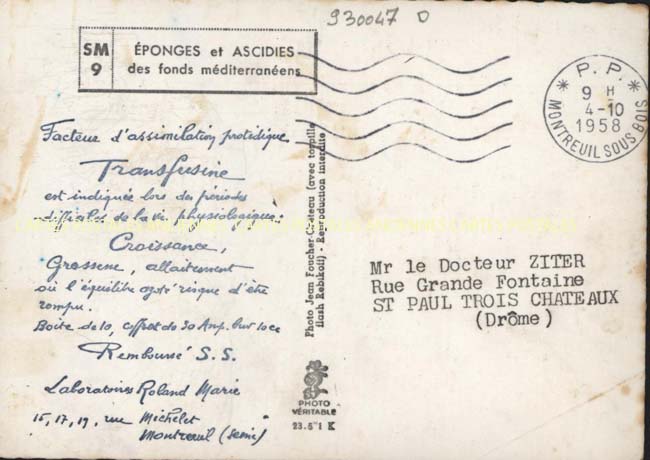 930047 D
SM
9
ÉPONGES et ASCIDIES
des fonds méditerranéens
* P. P. *
9 H
4-10
1958
MONTREUIL SOUS BOIS
Facteur d'assimilation protidique
Transfusine
est indiquée lors des périodes
difficiles de la vie physiologique:
Croissance,
Grossesse, allaitement
où l'équilibre azoté risque d'être
rompu.
Boite de 10, coffret de 30 Amp. buv 10cc
Remboursé S.S.
Laboratoires Roland Marie
15, 17, 19, rue Michelet
Montreuil (Seine)
Photo Jean Foucher-Créteau (avec torpille
flash Rebikoff) - Reproduction interdite
PHOTO
VÉRITABLE
K
Mr le Docteur ZITER
Rue Grande Fontaine
ST PAUL TROIS CHATEAUX
(Drôme)